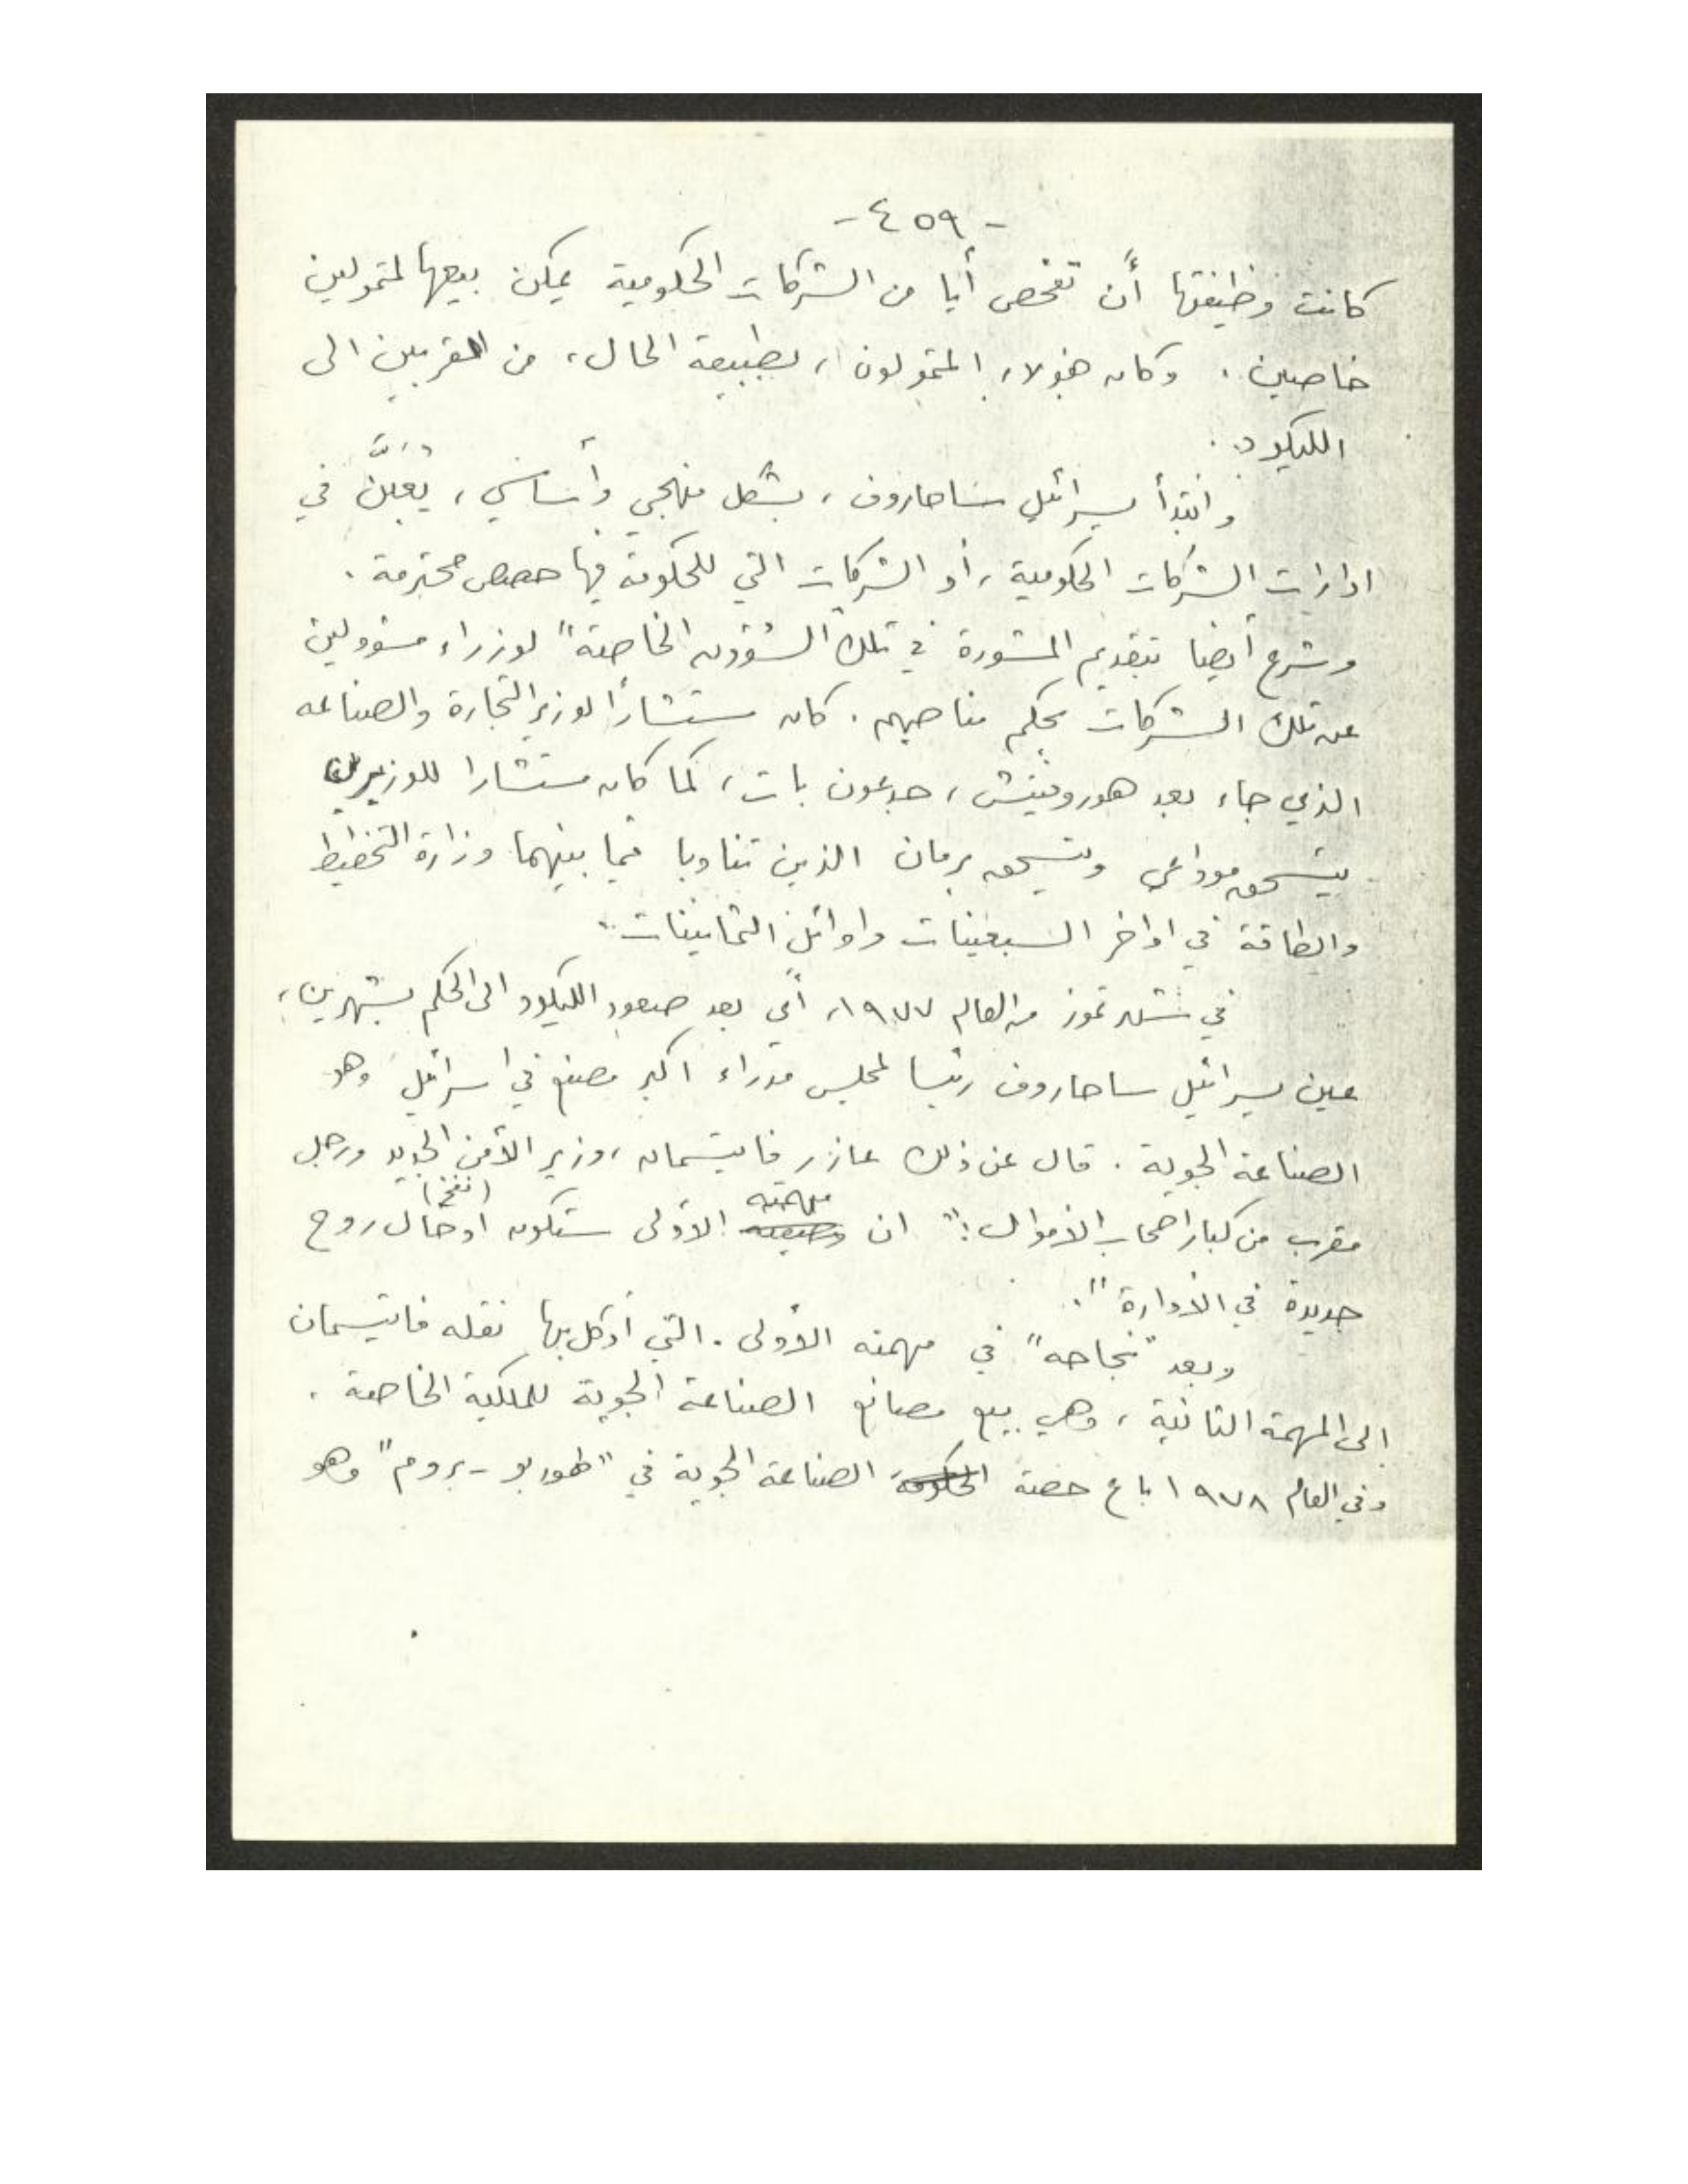 - ٤٥٩ -
كانت وظيفتها أن تفحص أيا من الشركات الحكومية يمكن بيعها لمتمولين
خاصين . وكان هؤلاء المتمولون ، بطبيعة الحال ، من المقربين الى
الليكود .
وابتدأ يسرائيل ساحاروف ، بشكل منهجي وأساسي ، يُعيَّن في
ادارات الشركات الحكومية ، أو الشركات التي للحكومة فيها حصص محترمة .
وشرع أيضا بتقديم المشورة في تلك "الشؤون الخاصة" لوزراء مسؤولين
عن تلك الشركات بحكم مناصبهم . كان مستشاراً لوزير التجارة والصناعه
الذي جاء بعد هوروفيتش ، جدعون بات ، كما كان مستشارا للوزيرين
يتسحق موداعي ويتسحق برمان الذين تناوبا فيما بينهما وزارة التخطيط
والطاقة في اواخر السبعينات واوائل الثمانينات .
في شهر تموز من العام ١٩٧٧ ، أي بعد صعود الليكود الى الحكم بشهرين ،
عين يسرائيل ساحاروف رئيسا لمجلس مدراء اكبر مصنع في اسرائيل وهو
الصناعة الجوية . قال عن ذلك عازر فايتسمان ، وزير الأمن الجديد ورجل
مقرب من كبار اصحاب الأموال : " ان مهمته الأولى ستكون ادخال (نفخ) روح
جديدة في الادارة " .
وبعد "نجاحه" في مهمته الأولى . التي أوكل بها نقله فايتسمان
الى المهمة الثانية ، وهي بيع مصانع الصناعة الجوية للملكية الخاصة .
وفي العام ١٩٧٨ باع حصة الحكومة الصناعة الجوية في "طوربو - بروم" وهو